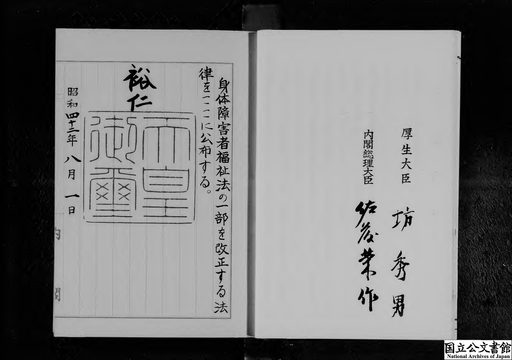 身体障害者福祉法の一部を改正する法
律をここに公布する。
裕仁
天皇
御璽
昭和四十二年八月一日
内閣
内閣総理大臣 佐藤榮作
厚生大臣 坊秀男
国立公文書館
National Archives of Japan